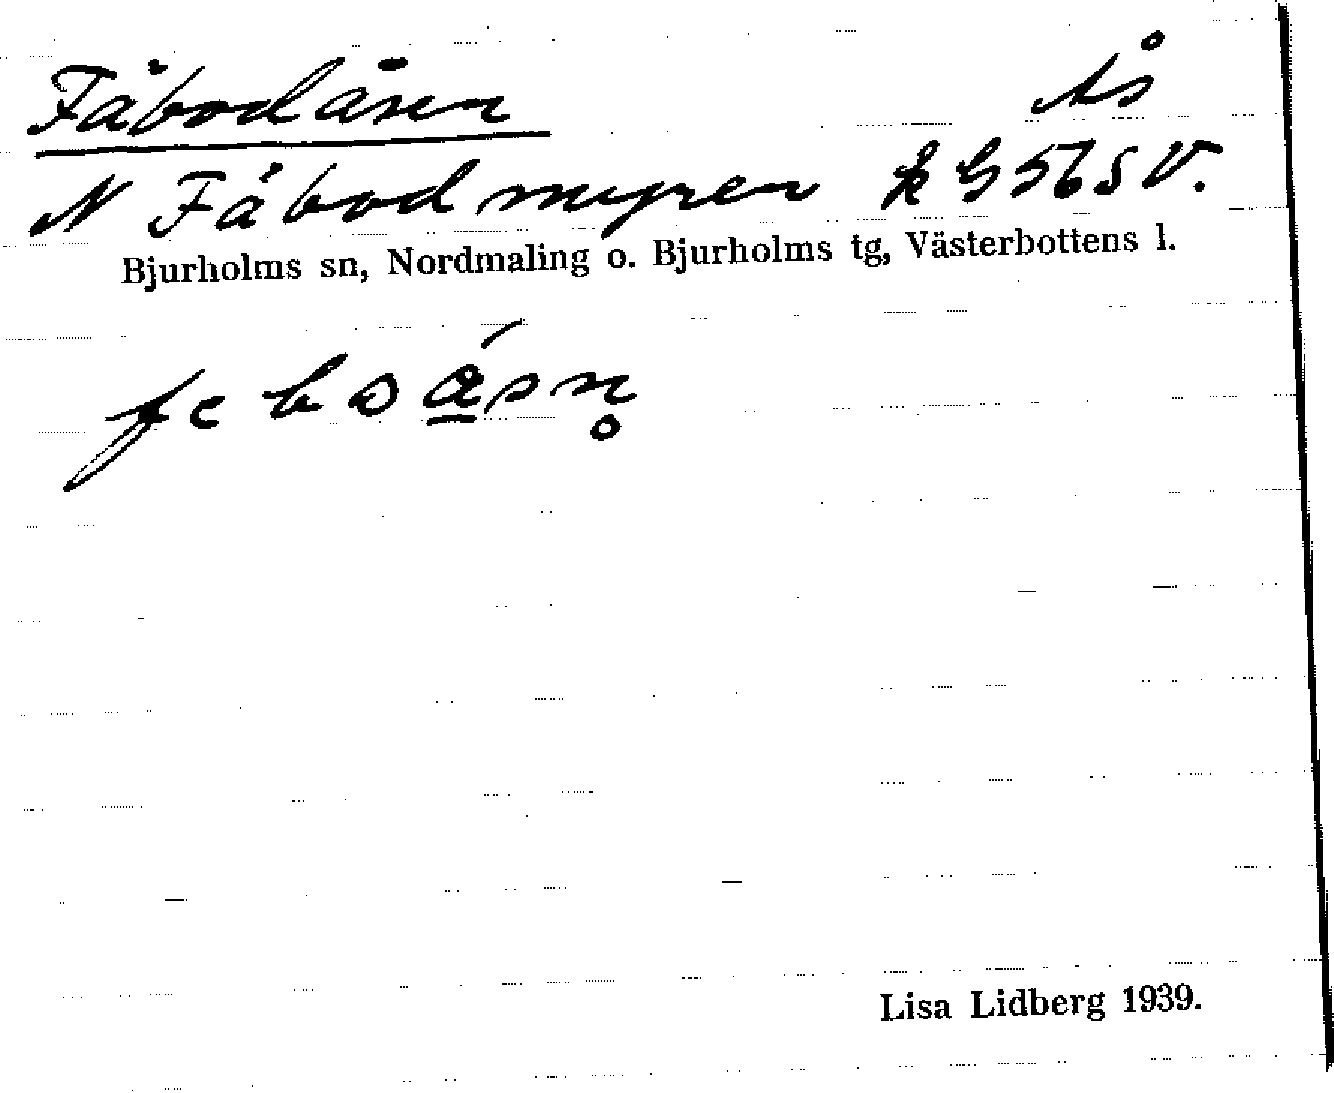 Fäbodåsen Ås
N Fäbodmyren k G 565 V.
Bjurholms sn, Nordmaling o. Bjurholms tg, Västerbottens l.
Lisa Lidberg 1939.